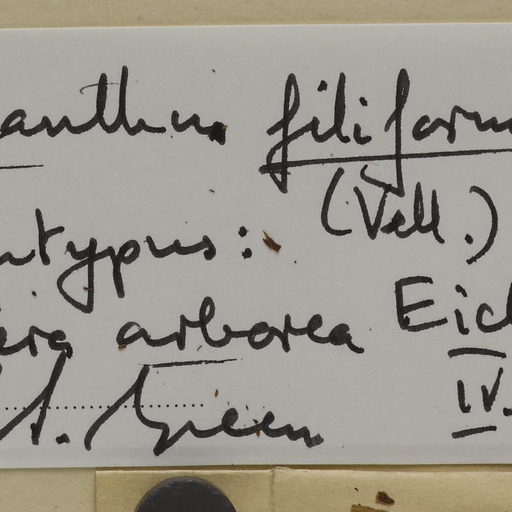 anthus filiform
(Vell.)
ntypus:
era arborea Eich
A. Green IV.